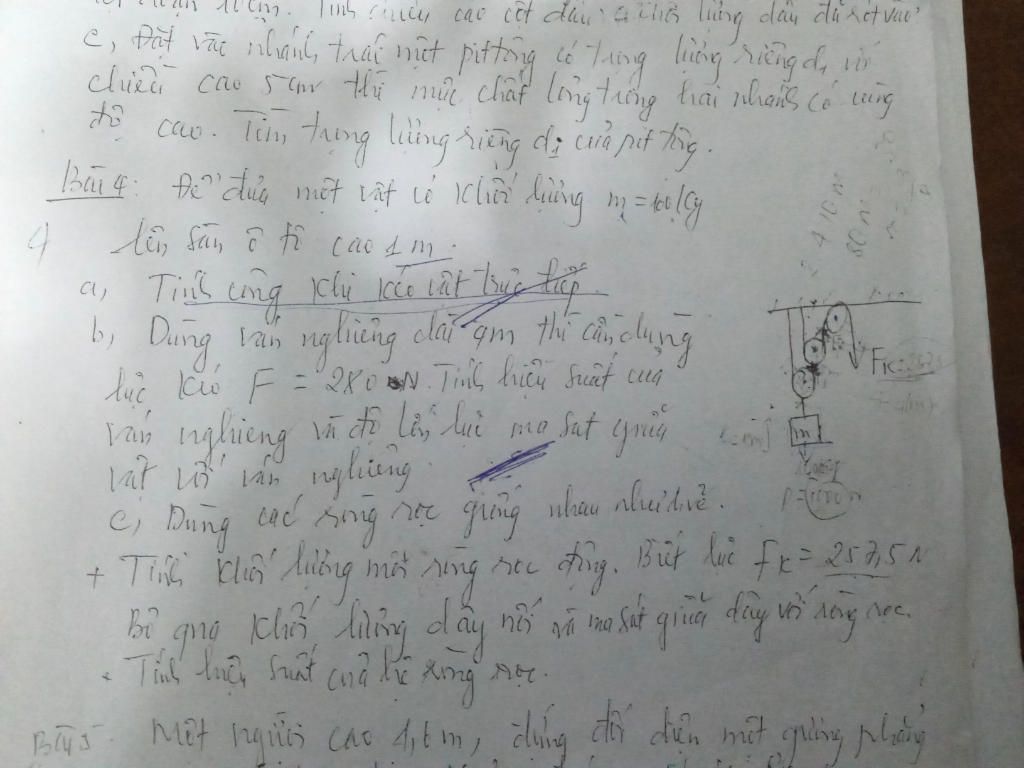 Tính chiều cao cột dầu
c, Đặt vào nhánh trái một pittông có trọng lượng riêng d1 với
chiều cao 5cm thì mực chất lỏng trong hai nhánh có cùng
độ cao. Tìm trọng lượng riêng d1 của pittông.
Bài 4: Để đưa một vật có khối lượng m = 100kg
lên sàn ô tô cao 1m.
a, Tính công khi kéo vật trực tiếp.
b, Dùng ván nghiêng dài 4m thì cần dùng
lực kéo F = 280 N. Tính hiệu suất của
ván nghiêng và độ lớn lực ma sát giữa
vật với ván nghiêng.
c, Dùng các ròng rọc giống nhau như hình vẽ.
FK
m
+ Tính khối lượng mỗi ròng rọc động. Biết lực FK = 257,5 N
Bỏ qua khối lượng dây nối và ma sát giữa dây với ròng rọc.
+ Tính hiệu suất của hệ ròng rọc.
Bài 5 Một người cao 1,6m, đứng đối diện một gương phẳng